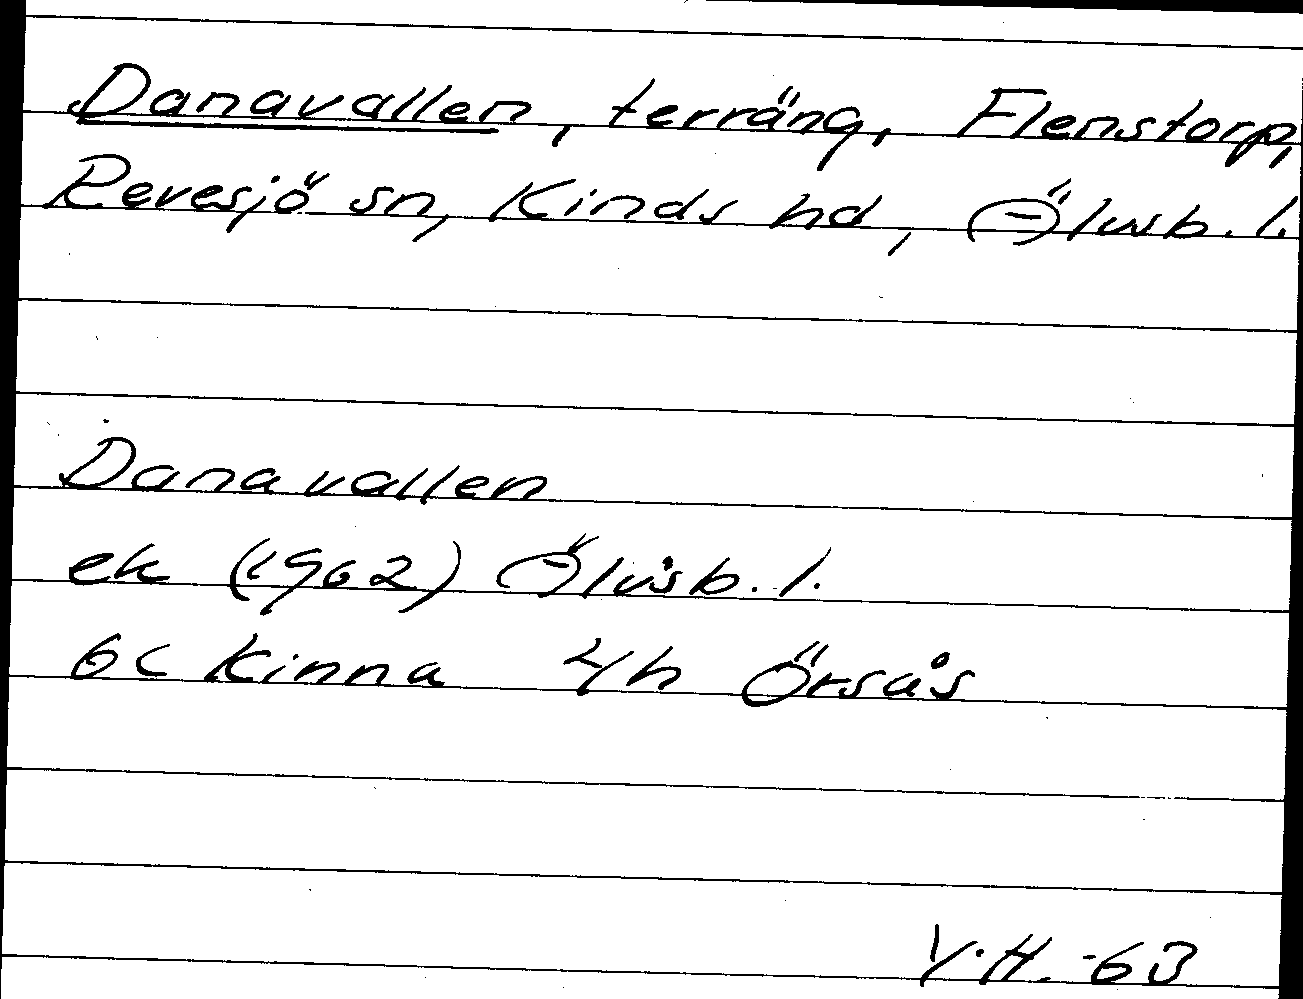 Danavallen, terräng, Flenstorp,
Revesjö sn, Kinds hd, Älvsb. l.
Danavallen
ek (1962) Älvsb. l.
6c Kinna 4h Örsås
Y.H. -63